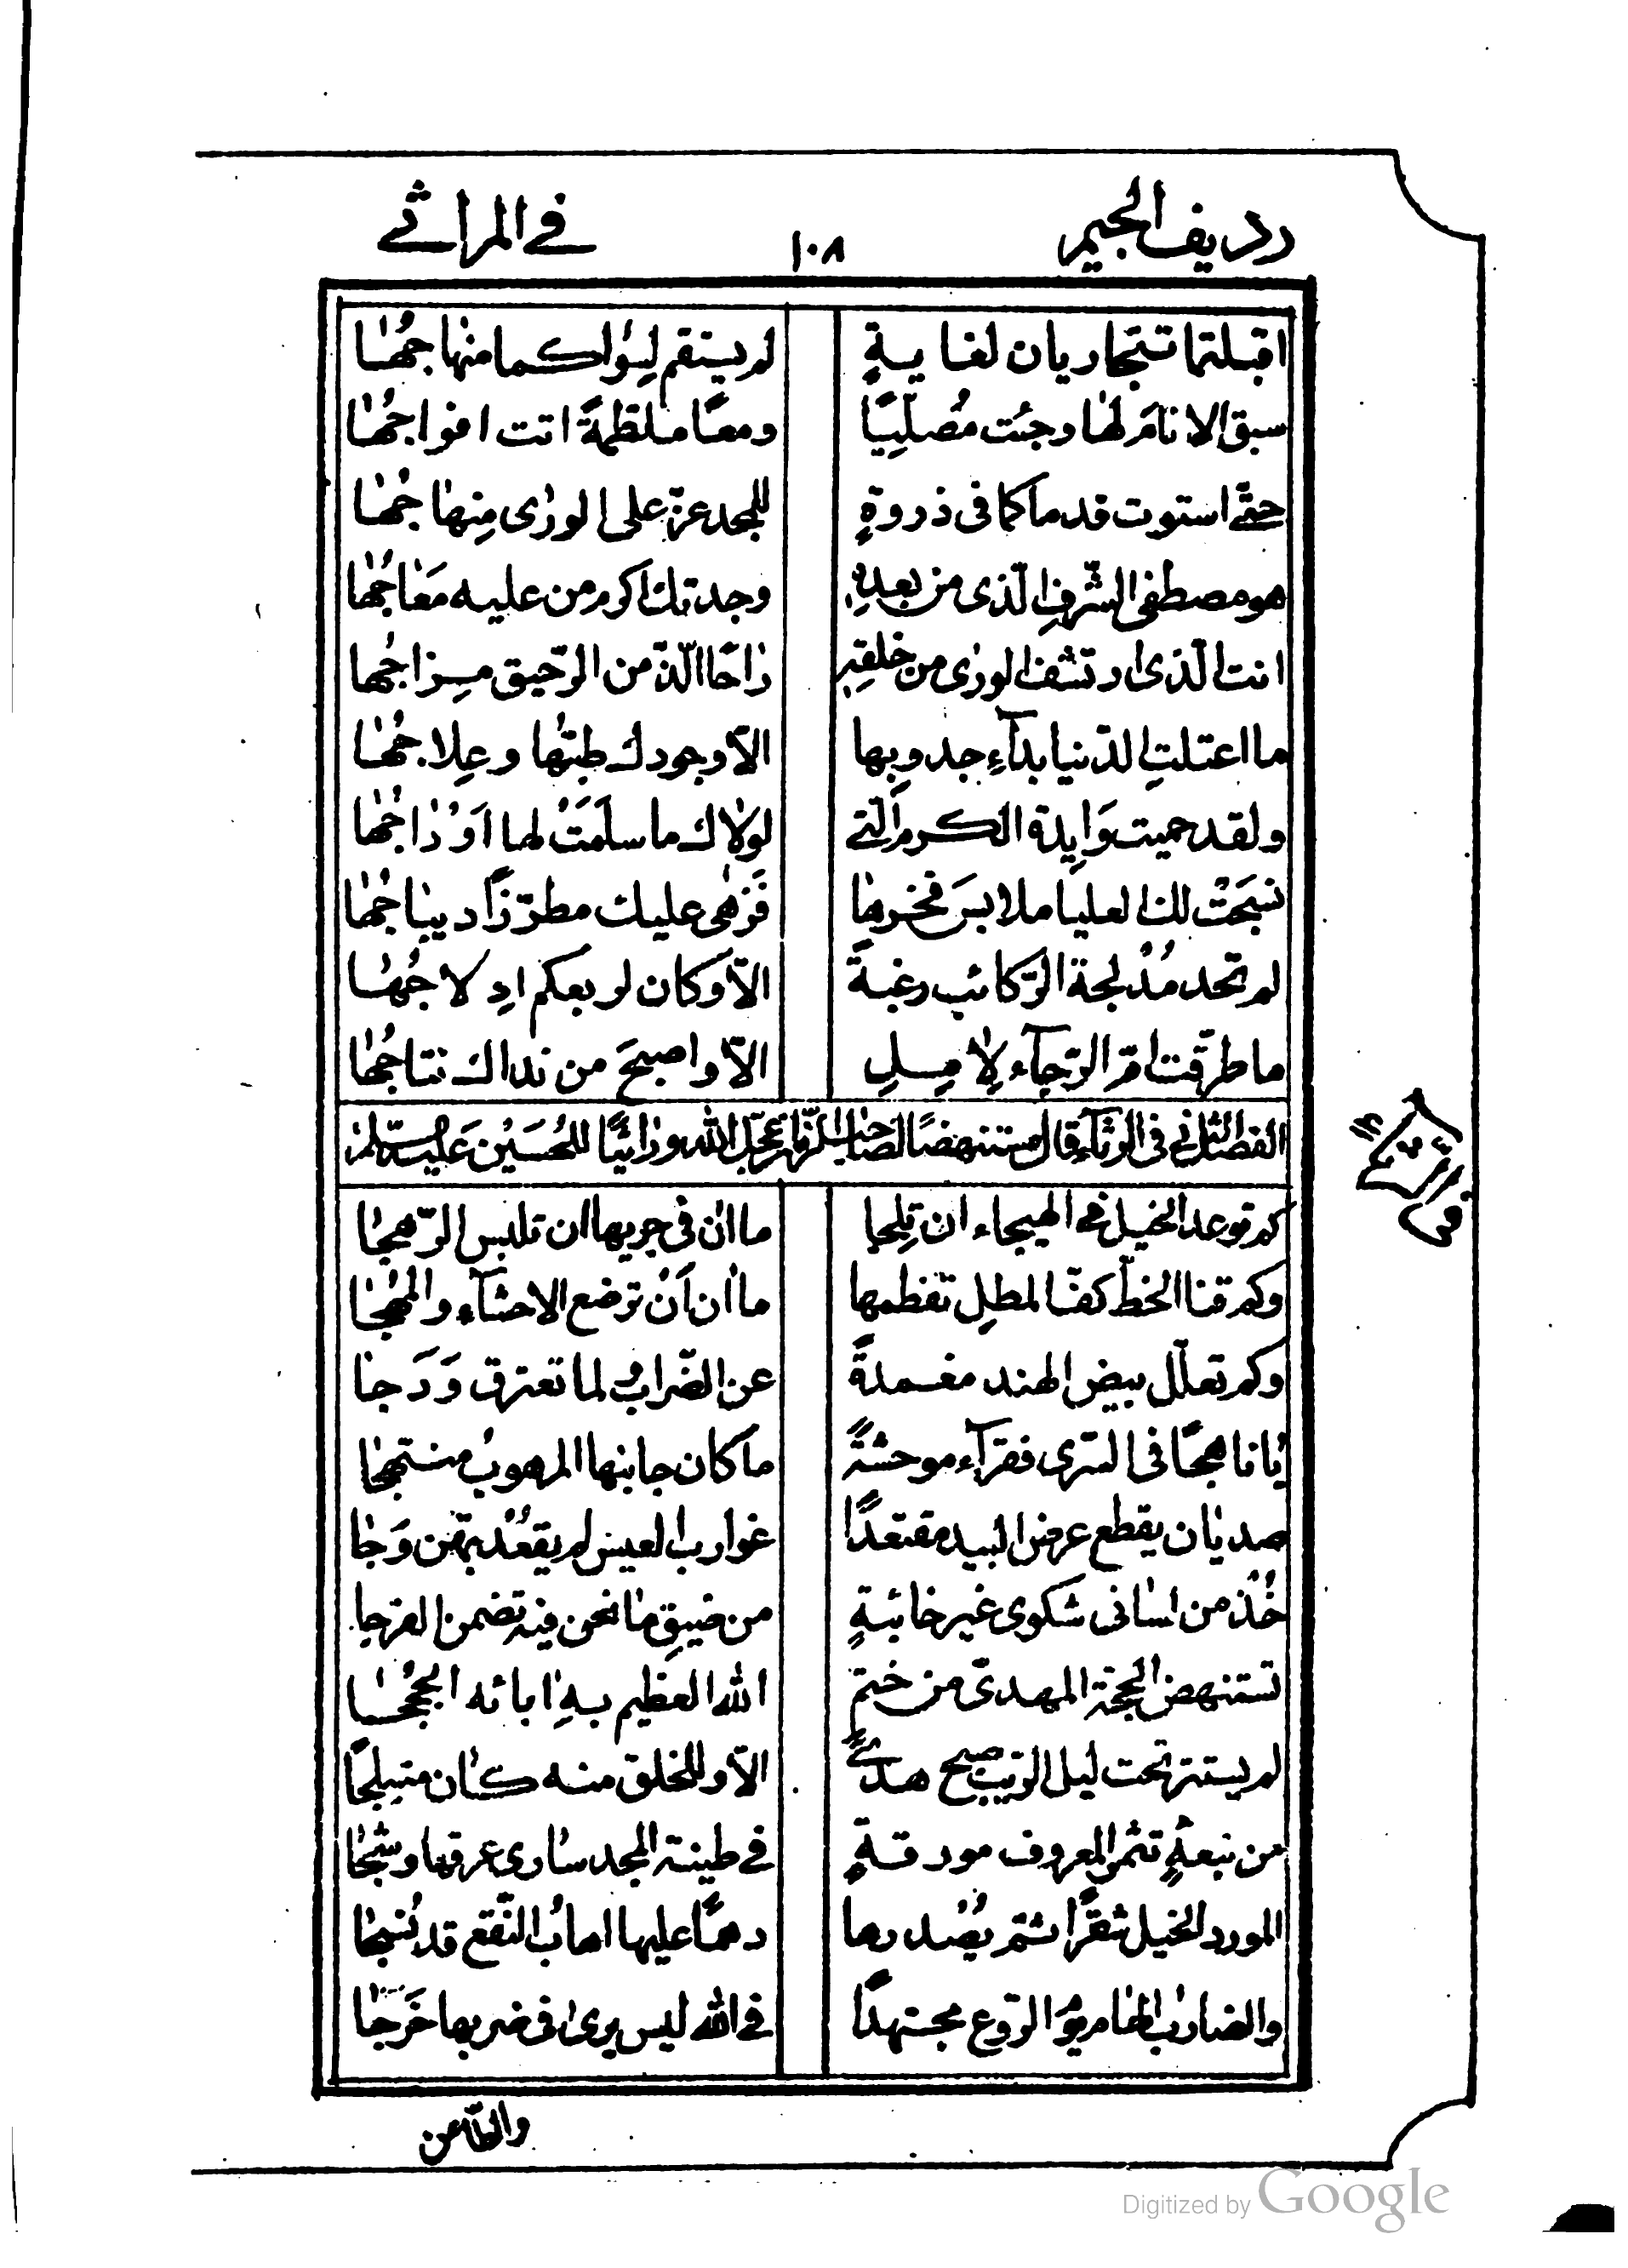 رديف الجيم ١٠٨ في المراثي
اقبلتما تتجاريان لغايةٍ لم يستقم لسواكما منهاجُها
سبق الانام لها وجئت مُصلّيًا ومعًا ملظمةً اتت افواجُها
حتّى استوت قدماكما فى ذروةٍ للمجد عزّ على الورى مِنهاجُها
هو مصطفى الشّرفِ الّذى من بعدِهِ وجدتك اكرم من عليه مَعاجُها
انت الّذى ارتشف الورى من خلقِهِ راحًا الّذ من الرّحيق مِزاجُها
ما اعتلتِ الدّنيا بدآءِ جدوبِها الّا وجودك طبّها وعِلاجُها
ولقد حميت وَابِدة الكرم الّتى لولاك ما سلمَتْ لها اَوْداجُها
نسجَتْ لك العليا ملابسَ فخرِها فَزهى عليك مطرّزًا ديباجُها
لم تحد مُدْلجة الرّكائب رغبةً الّا وكان لربعكم ادِلاجُها
ما طرّقت امّ الرّجآء لِامِلٍ الّا واصبحَ من نداك نتاجُها
الفصل الثّانى فى الرّثآء قال مستنهضًا لصاحب الزّمان عجّل الله وراثيًا للحُسَيْن عَليه السّلام
كم توعد الخيل فى الهيجاء ان تلِجا ما ان فى جريها ان تلبس الرّهجا
وكم قنا الخطّ كفّ المطلِ تفطمها ما ان اَنْ ترضع الاحشآء والمُهجا
وكم تعلّل بيض الهند مغمدةً عن الضّراب لما تعترق وَدَجا
يا ناهجًا فى السّرى قفرآء موحشةً ما كان جانبها المرهوب منتهجا
صديان يقطع عرض البيد مقتعدًا غوارب العيس لم يقعُد بهنّ وَجا
خُذ من لسانى شكوى غير خائبةٍ من ضيقِ ما نحن فيه تضمن الفرجا
تستنهض الحجّة المهدىّ من ختم الله العظيم بهِ ابائه الحُججا
لم يستتر تحت ليل الرّيب صبح هدىً الّا وللخلق منه كان متبلجًا
من نبعةٍ تثمر المعروف مورقةٍ في طينة المجد سارى عرقها وشجا
المورد الخيل شقرًا ثم يُصْدرها دهمًا عليها اهابُ النّقع قد نُسجا
والضارب الهام يوم الرّوع مجتهدًا في الله ليس يرى فى ضربها حَرَجا
والطّاعن
Digitized by Google